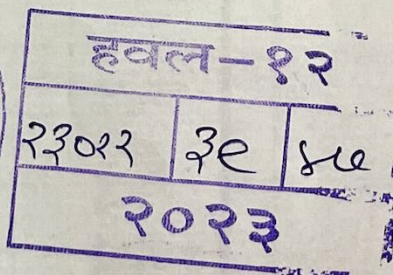 हवल-१२
२३०२२ ३९ ४७
२०२३